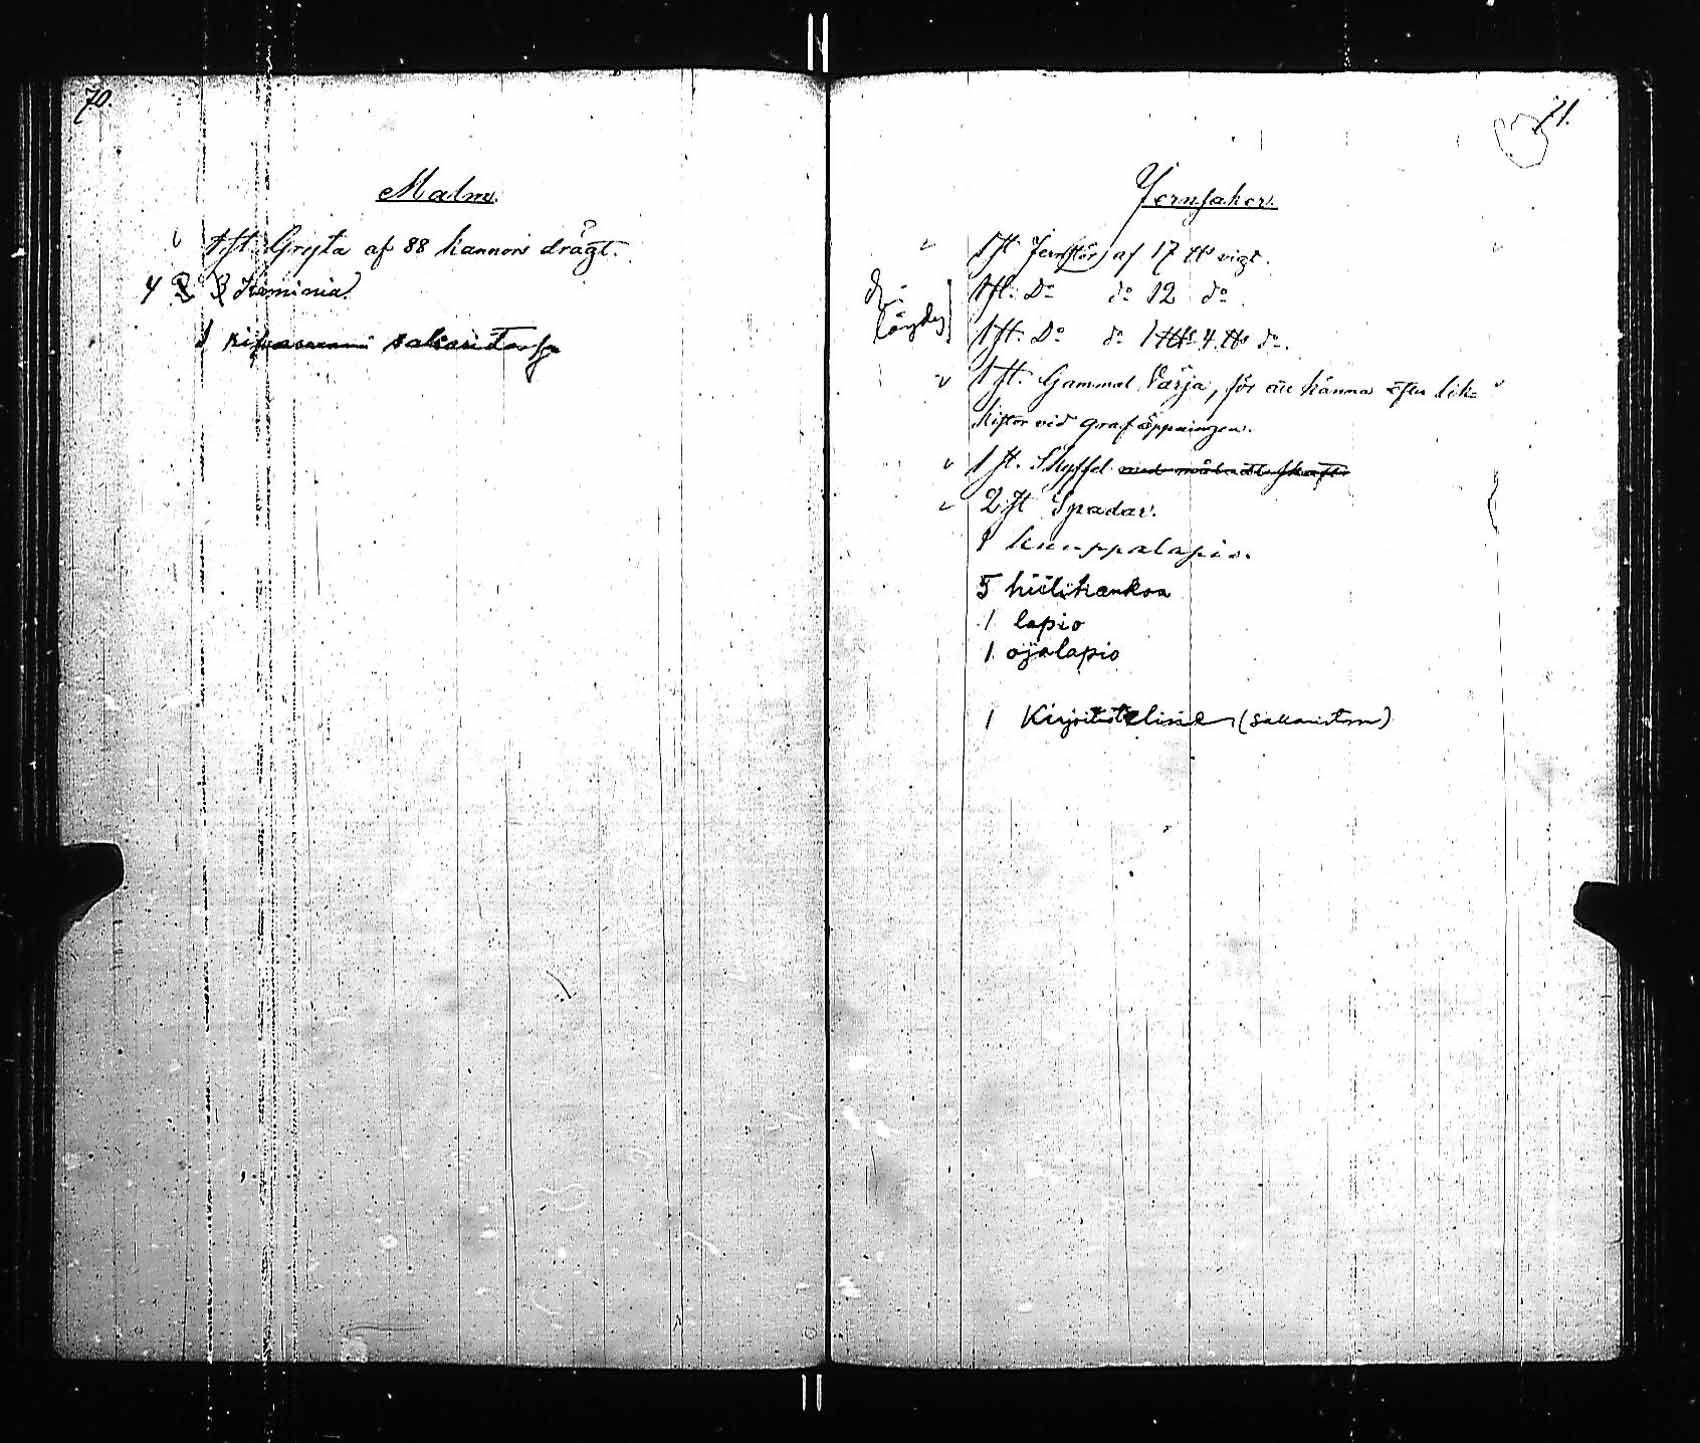 70.
Malm.
1 st. Gryta af 88 kannors drägt.
4 2 3 Kaminia.
1 sakaristossa
71.
Jernsaker.
1 st. Jernstör af 17 ℔ vigt.
1 st. Do do 12 do
1 st. Do do 1 L℔ 4 ℔ do.
ei löydy
1 st. Gammal Värja, för att känna efter lik-
kistor vid graföppningen.
1 st. Skyffel med måladt skaft
2 st Spadar.
1 kuuppalapio.
5 hiilihankoa
1 lapio
1 ojalapio
1 Kirjoitusteline (sakaristossa)